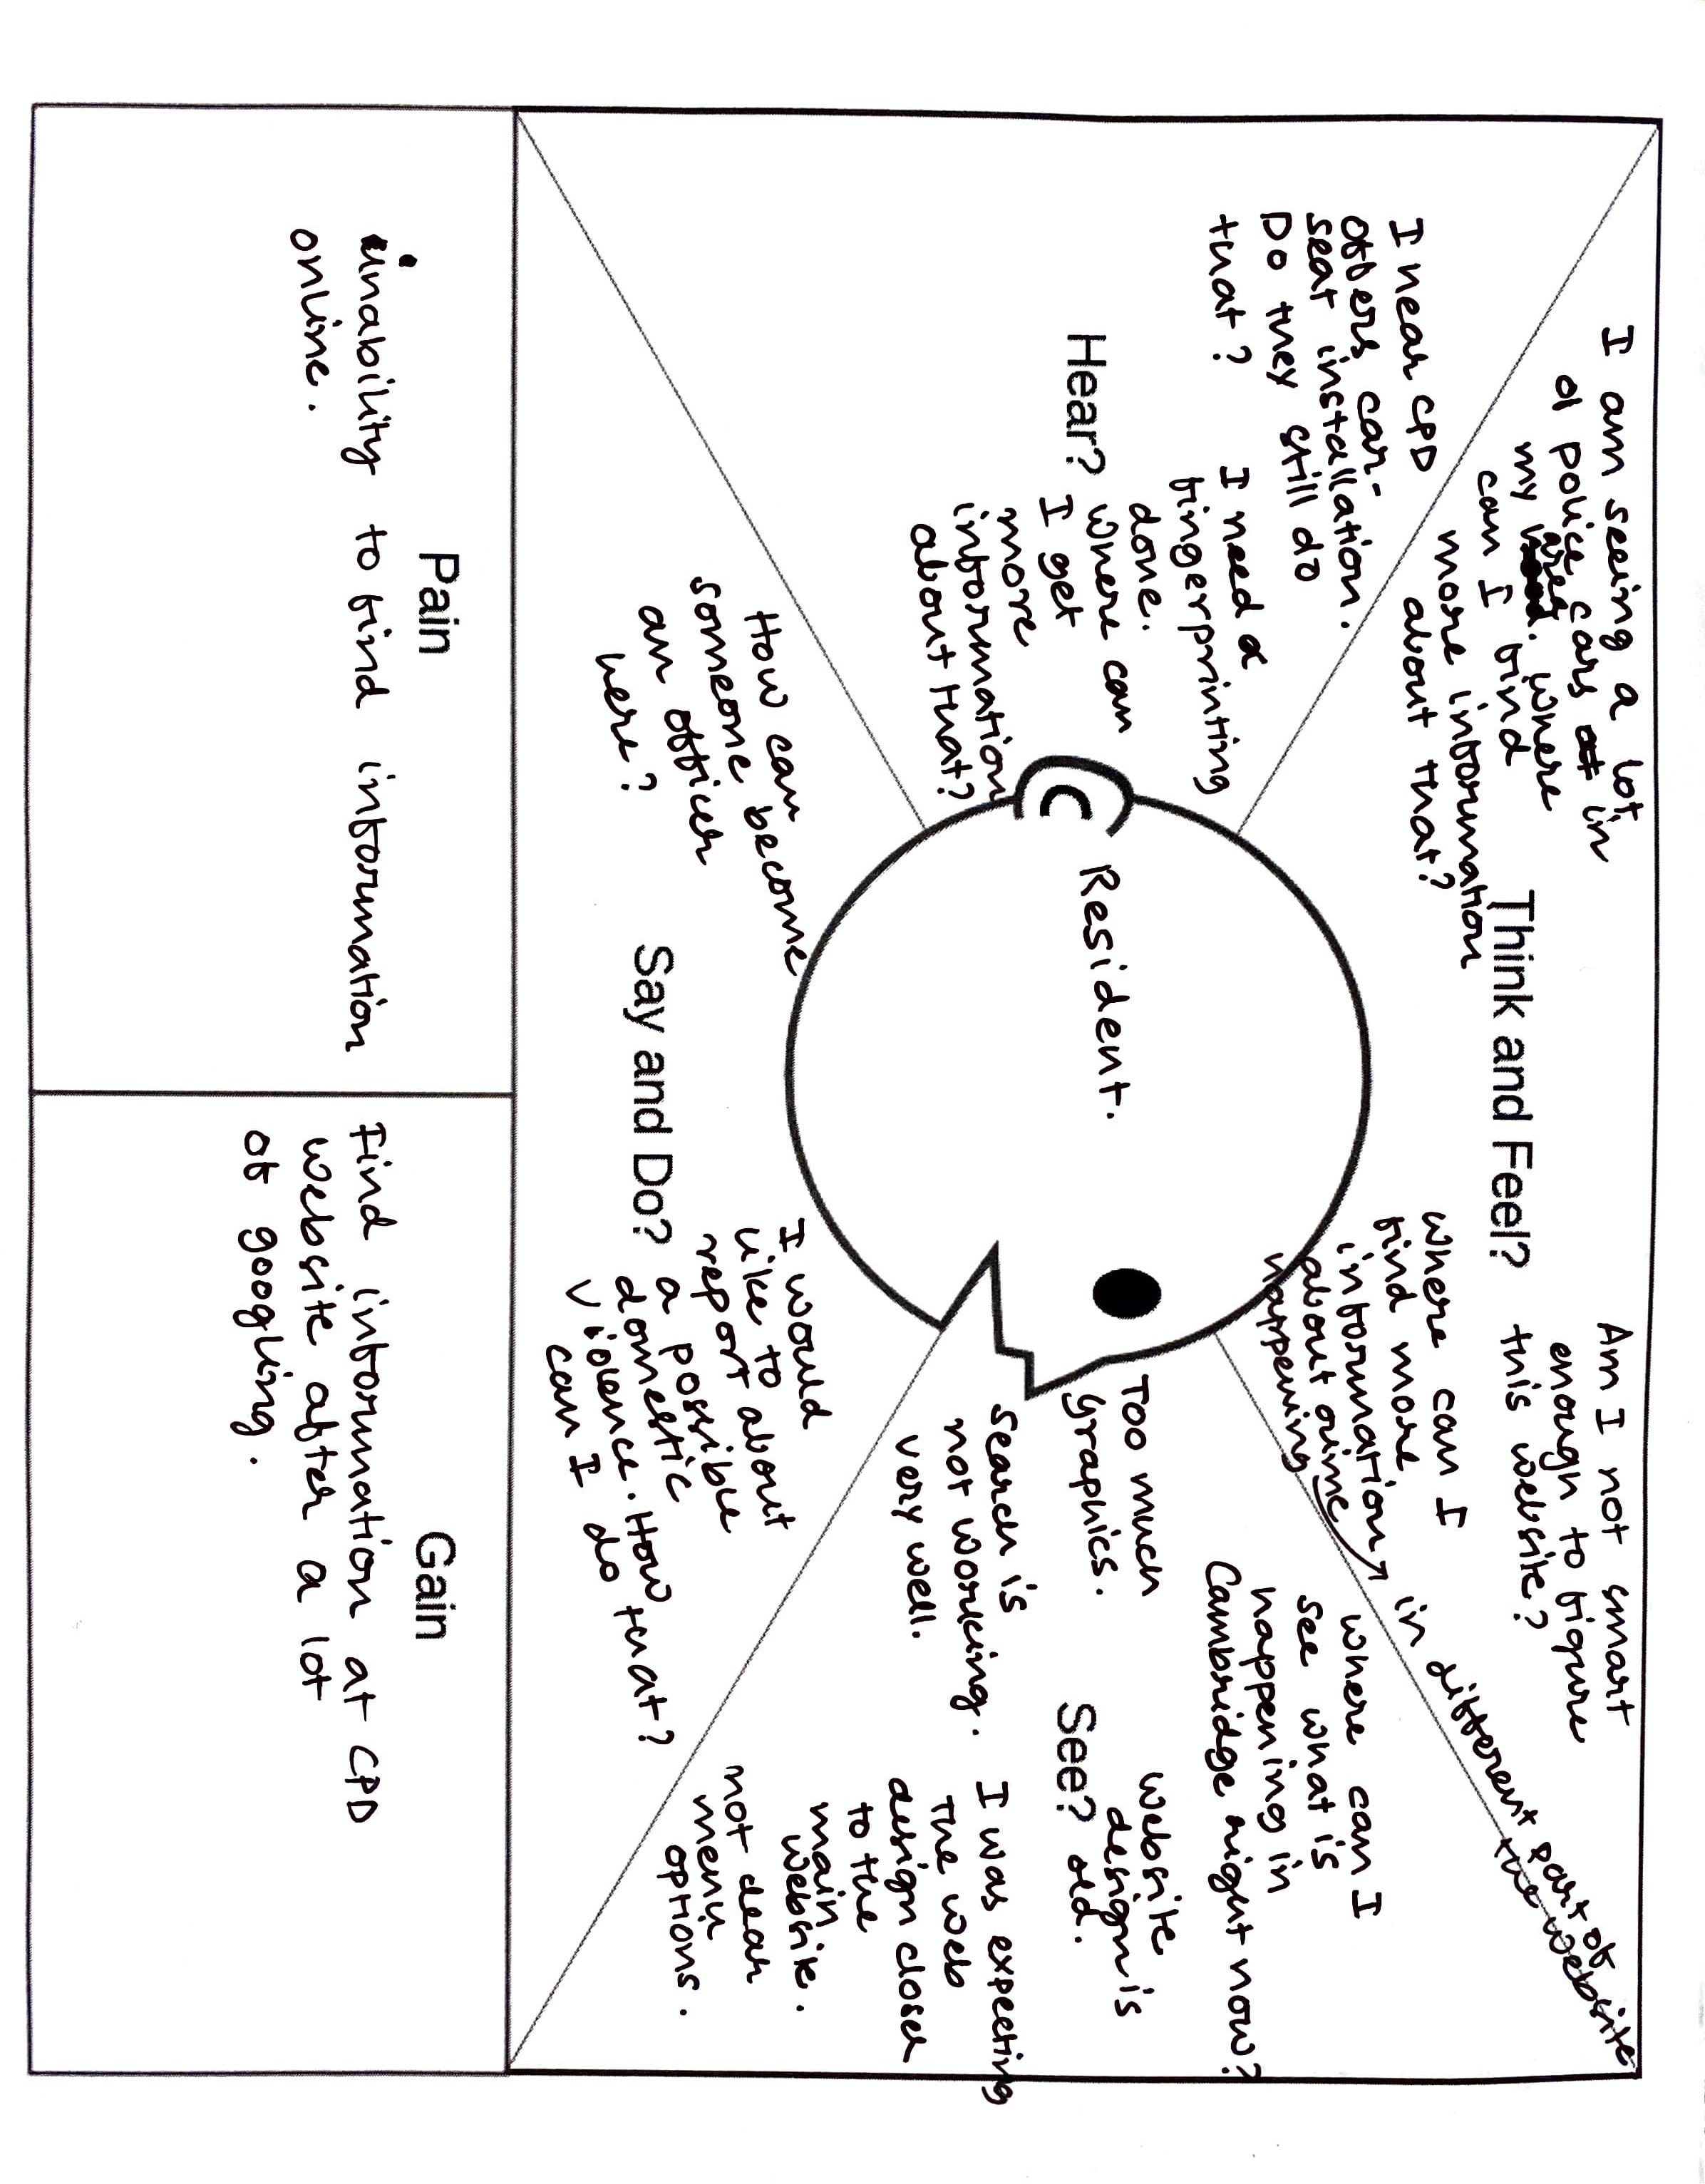 I am seeing a lot
of police cars in
my area. Where
can I find
more information
about that?
Think and Feel?
Am I not smart
enough to figure
this website?
Where can I
find more
information
about crime
happening
in different part of
the website
I hear CPD
offers car-
seat installation.
Do they still do
that?
Hear?
I need a
fingerprinting
done.
Where can
I get
more
information
about that?
Resident.
Where can I
see what is
happening in
Cambridge right now?
Too much
graphics.
Search is
not working
very well.
See?
Website
design is
old.
I was expecting
the web
design closer
to the
main
website.
not clear
menu
options.
How can
someone become
an officer
here?
Say and Do?
I would
like to about
report about
a possible
domestic
violence. How
can I do that?
Pain
Unability to find information
online.
Gain
Find information at CPD
website after a lot
of googling.